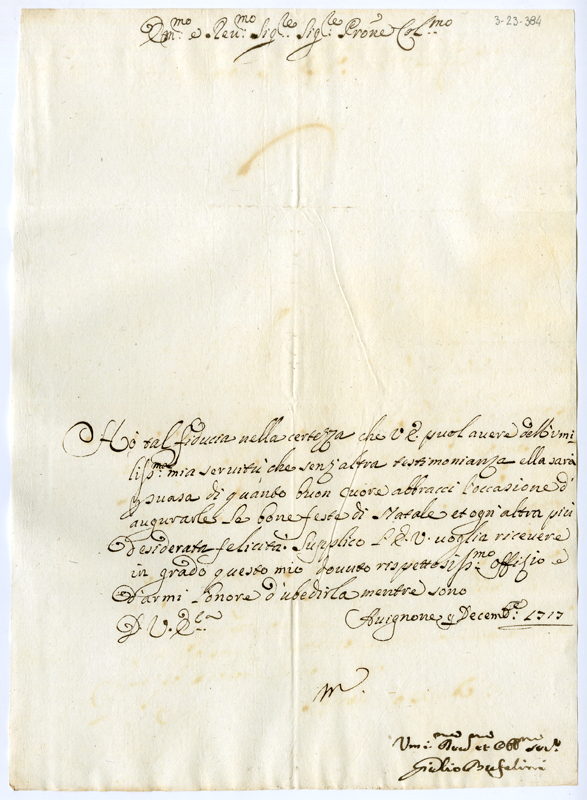 3-23-384
Em.mo e Reu.mo Sig.re Sig.re Prõne Col.mo
Hò tal fiducia nella certezza che V E. puol auere dell'Vmi
liss.mo mia seruitù che senz'altra testimonianza ella sarà
psuasa di quanto buon cuore abbracci l'occasione d'
augurarle le bone feste di Natale et ogn'altra più
desiderata felicità. Supplico l'E. V. voglia riceuere
in grado questo mio douuto rispettosiss.mo offizio e
d'armi l'onore d'ubedirla mentre sono
D. V. E.
Auignone 9 Decemb.e 1717
Vmi.mo Deu.mo et Obb.mo Ser.e
Giulio Bufalini